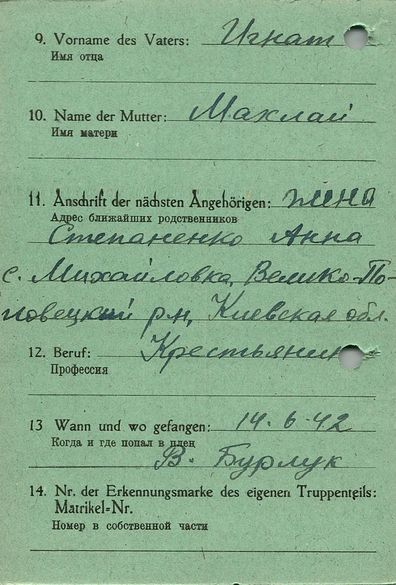 9. Vorname des Vaters: Игнат
Имя отца
10. Name der Mutter: Махлай
Имя матери
11. Anschrift der nächsten Angehörigen: жена
Адрес ближайших родственников
Степаненко Анна
с. Михайловка, Велико-По-
ловецкий р-н, Киевская обл.
12. Beruf: Крестьянин
Профессия
13 Wann und wo gefangen: 14.6.42
Когда и где попал в плен
В. Бурлук
14. Nr. der Erkennungsmarke des eigenen Truppenteils:
Matrikel-Nr.
Номер в собственной части